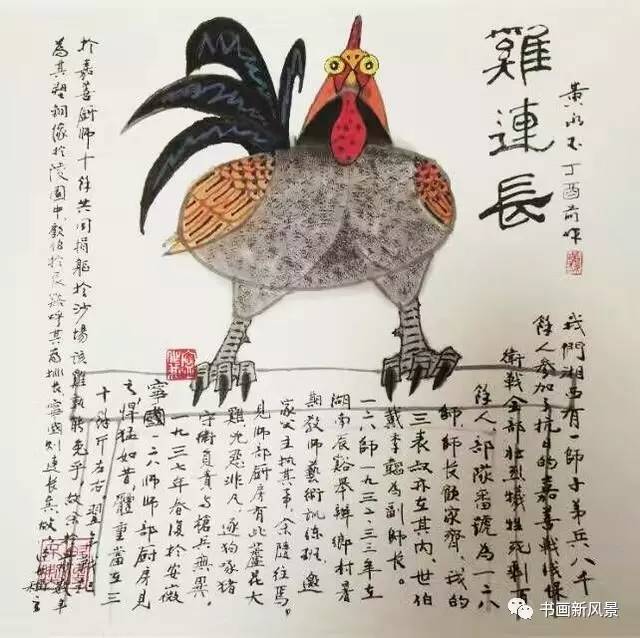 雞連長
黄永玉丁酉前作
我們湘西有一師子弟兵八千
餘人參加了抗日的嘉善戰役保
衛戰全部壯烈犧牲死剩百
餘人、部隊番號為一二八
師、師長顧家齊,我的
三表叔亦在其內、世伯
戴季韜為副師長。
一二八師一九三二、三三年在
湖南辰谿舉辦鄉村暑
期教師藝術訓練班、邀
家父主執其事、余隨往焉。
見師部廚房有此蘆花大
雞兇惡非凡、逐狗啄豬
守衛負責与槍兵無異。
一九三七年春復於安徽
寧國一二八師師部廚房見
之悍猛如昔、體重當在三
十餘斤左右、翌
於嘉善廚師十餘共同捐軀於沙場該雞孰能免乎、故余
為其塑銅像於陵園中於辰谿呼其為排長寧國則連長矣
书画新风景